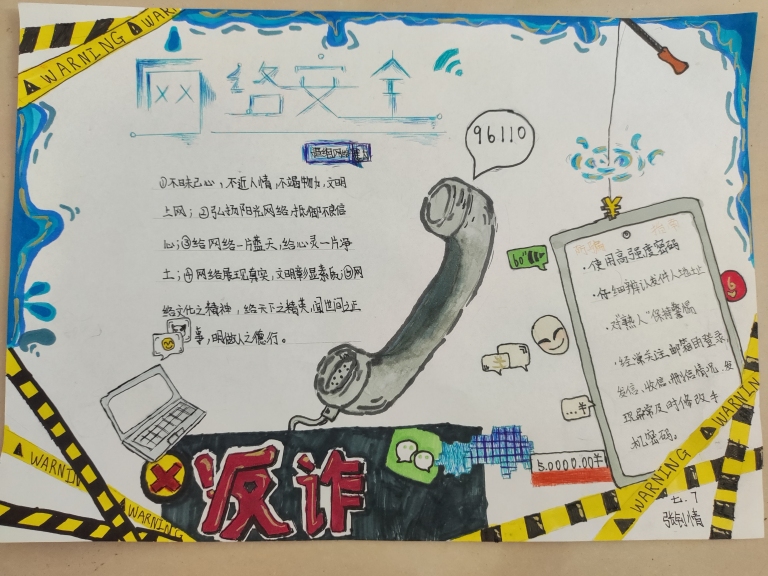 WARNING WAR
网络安全
96110
①不昧己心，不近人情，不竭物力，文明
上网；②弘扬阳光网络，抵御不良信
心；③给网络一片蓝天，给心灵一片净
土；④网络展现真实，文明彰显素质；⑤网
络文化之精神，络天下之精英，闻世间之正
事，明做人之德行。
60"
¥
防骗
·使用高强度密码
·仔细辨认发件人地址
·对"熟人"保持警惕
·经常关注邮箱的登录、
发信、收信、删信情况，发
现异常及时修改手
机密码。
6
¥
...¥
反诈
50000.00¥
WARNIN
WARNING
WARNING
WARNIN
七.7